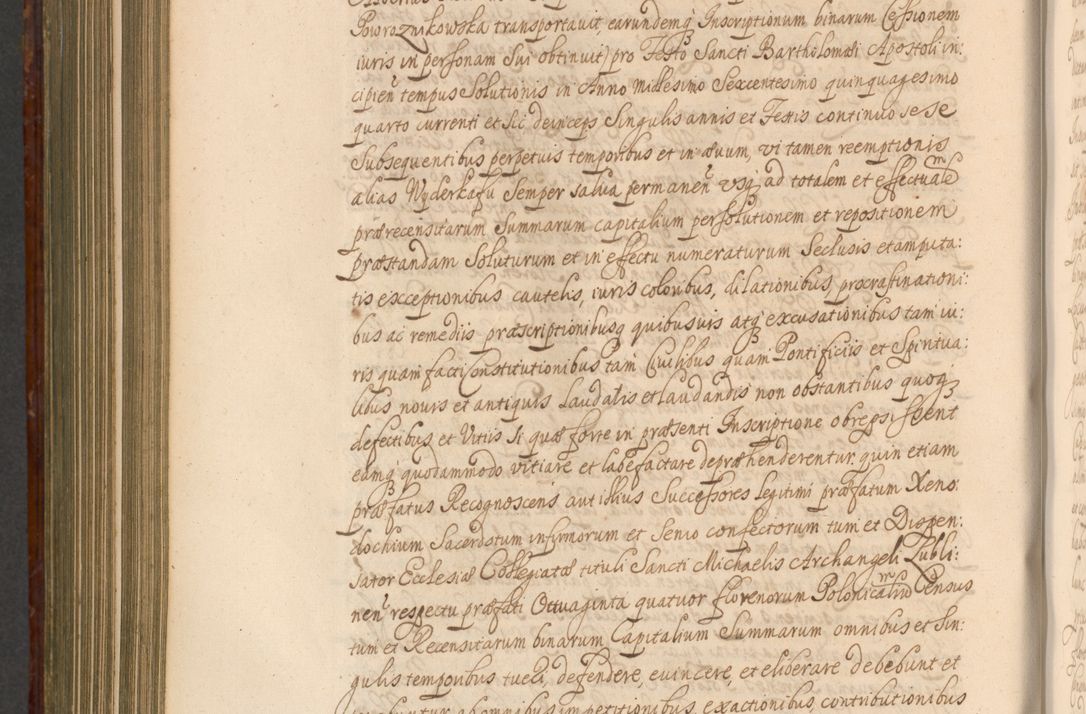 Poworoznikowska transportavit, earundemq Inscriptionum binarum Cessionem
iuris in personam Sui obtinuit) pro Festo Sancti Bartholomæi Apostoli in:
cipien tempus Solutionis in Anno Millesimo Sexcentesimo quinquagesimo
quarto currenti et sic deinceps Singulis annis et Festis continuo se se
Subsequentibus perpetuis temporibus et in ævum, vi tamen reemptionis
alias Wyderkafu Semper salva permanen usq ad totalem et effectualem
prærecensitarum Summarum capitalium persolutionem et repositionem
præstandam Soluturum et in effectu numeraturum Seclusis et amputa:
tis exceptionibus cautelis, iuris coloribus, dilationibus procrastinationi:
bus ac remediis præscriptionibusq quibusvis atq excusationibus tam iu:
ris quam facti Constitutionibus tam Civilibus quam Pontificiis et Spiritua:
libus novis et antiquis laudatis et laudandis non obstantibus quoq
defectibus et Vitiis si quæ forte in præsenti Inscriptione obrepsissent
eamq quodammodo vitiare et labefactare deprehenderentur quin etiam
præfatus Recognoscens aut illius Successores legitimi præfatum Xeno:
dochium Sacerdotum infirmorum et Senio confectorum tum et Dispen:
sator Ecclesiæ Collegiatæ tituli Sancti Michaelis Archangeli Lubli:
nen respectu præfati Octuaginta quatuor florenorum Polonicalium Census
tum et Recensitarum binarum Capitalium Summarum omnibus et sin:
gulis temporibus tueri, defendere, evincere, et eliberare debebunt et
ab omnibus impetitionibus, exactionibus, contributionibus